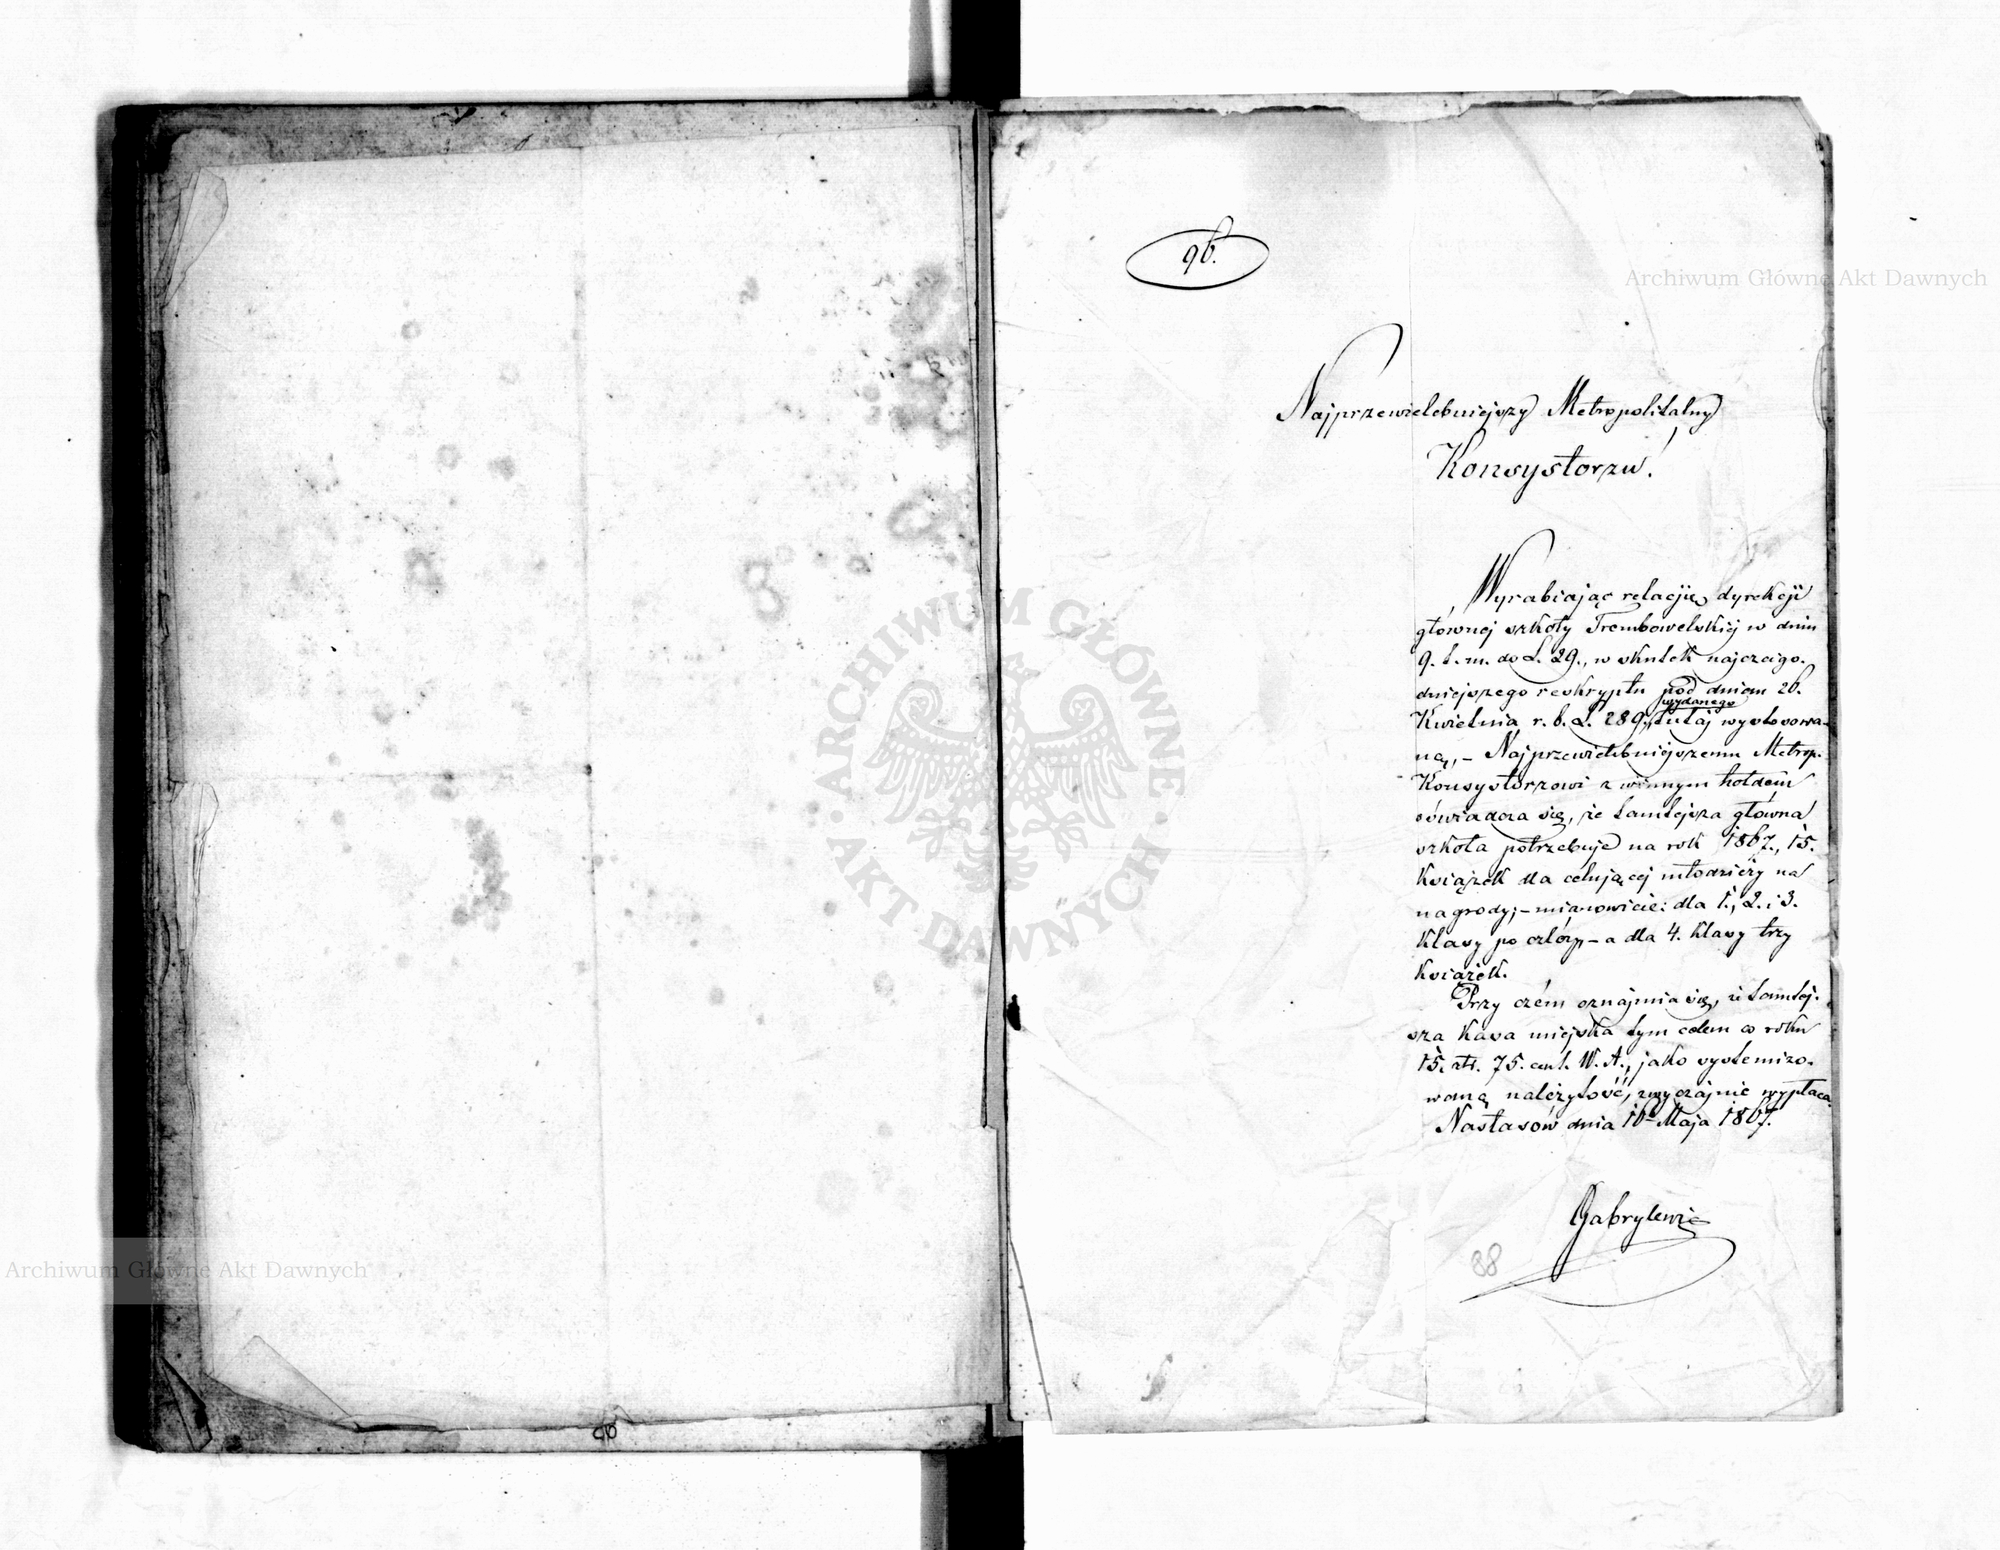 96.
Najprzewielebniejszy Metropolitalny
Konsystorzu!
Wyrabiając relacjię dyrekcji
głównej szkoły Trembowelskiej w dniu
9. b. m. do L. 29., w skutek najczcigo-
dniejszego reskryptu pod dniem 26.
wydanego
Kwietnia r. b. L. 289., tutaj wystosowa-
ną, – Najprzewielebniejszemu Metrop.
Konsystorzowi z winnym hołdem
oświadcza się, że tamtejsza główna
szkoła potrzebuje na rok 1867., 15.
książek dla celującej młodzieży na
nagrody; – mianowicie: dla 1., 2. i 3.
klasy po cztéry, – a dla 4. klasy trzy
książek.
Przy czém oznajmia się, iż tamtej-
sza kasa miejska tym celem co roku
15. złr. 75. cent. W. A., jako systemizo-
waną należytość, zwyczajnie wypłaca.
Nastasów dnia 10 Maja 1867.
Gabrylewicz
88
Archiwum Główne Akt Dawnych
Archiwum Główne Akt Dawnych
ARCHIWUM GŁÓWNE
AKT DAWNYCH